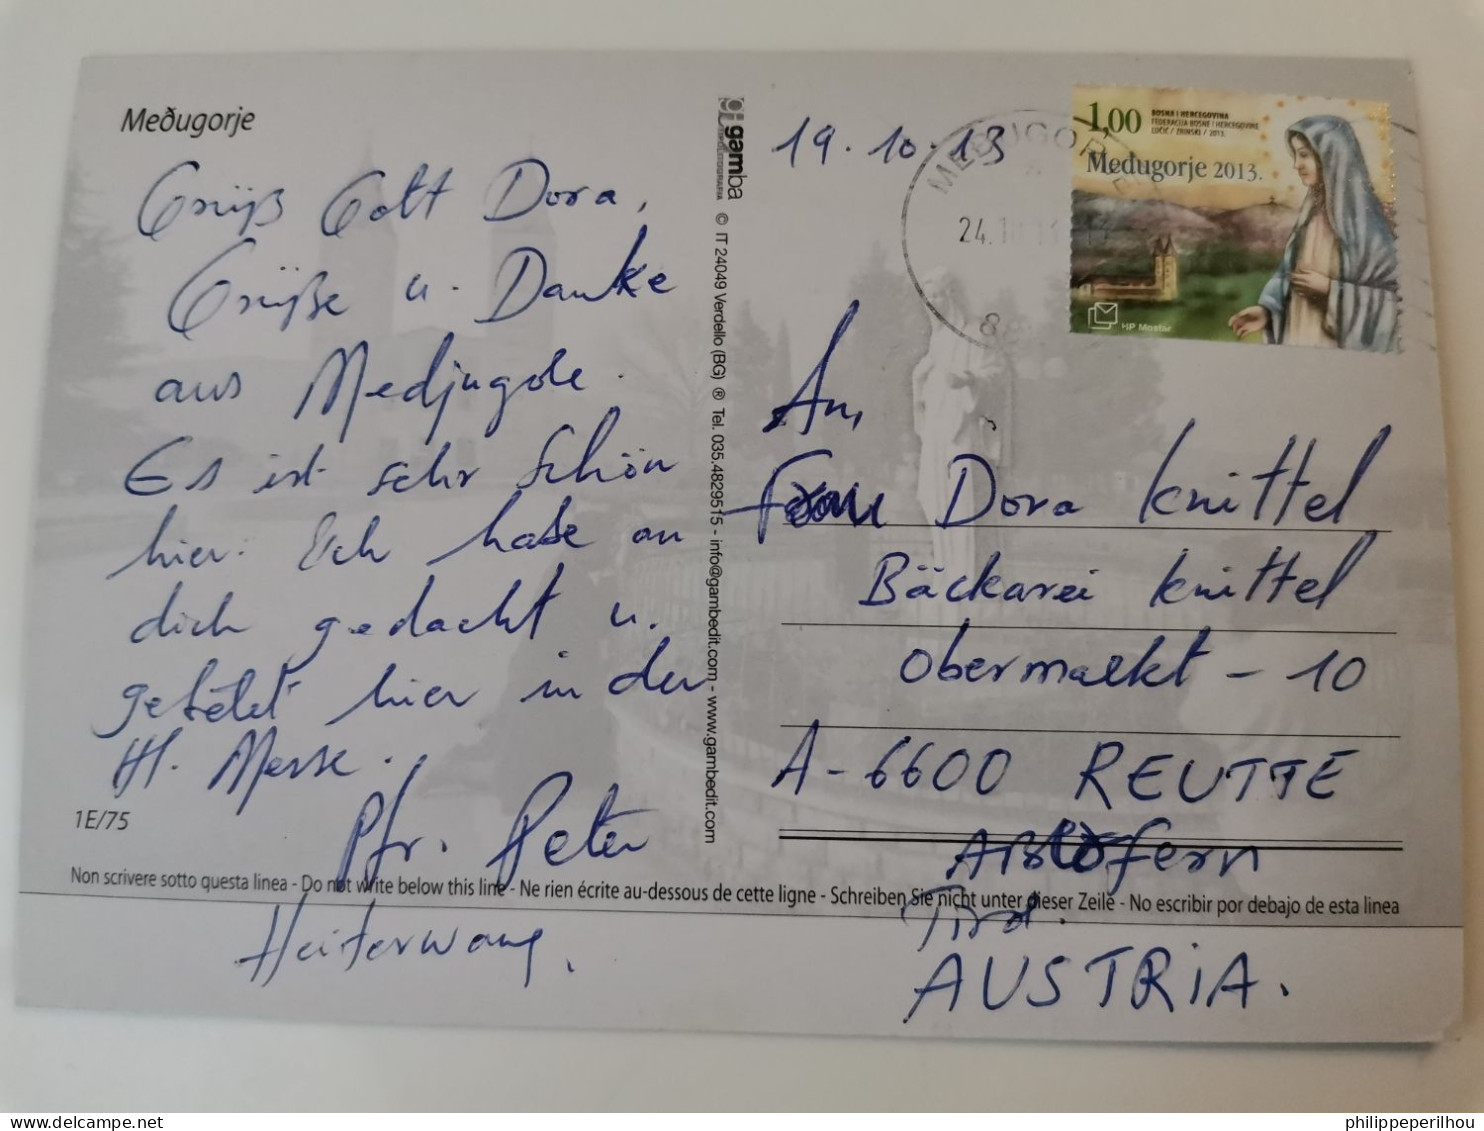 Međugorje
Grüß Gott Dora,
Grüße u. Danke
aus Medjugole.
Es ist sehr schön
hier. Ich habe an
dich gedacht u.
gebetet hier in der
Hl. Messe.
Pfr. Peter
Heiterwang.
1E/75
gamba
© IT 24049 Verdello (BG) ® Tel. 035.4829515 - info@gambedit.com - www.gambedit.com
19.10.13
MEĐUGORJE
24.10.13
8
1,00
BOSNA I HERCEGOVINA
FEDERACIJA BOSNE I HERCEGOVINE
LUČIĆ / ZRINSKI / 2013.
Međugorje 2013.
HP Mostar
An
Frau Dora Knittel
Bäckarei Knittel
Obermarkt - 10
A-6600 REUTTE
Tirol.
AUSTRIA.
Non scrivere sotto questa linea - Do not write below this line - Ne rien écrite au-dessous de cette ligne - Schreiben Sie nicht unter dieser Zeile - No escribir por debajo de esta linea
philippeperilhou